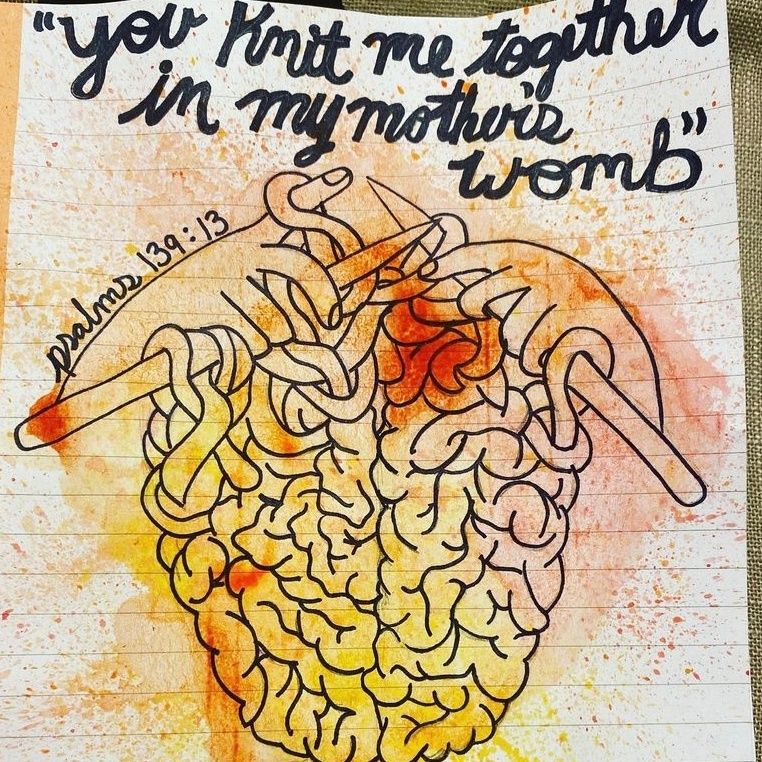 "you Knit me together
in my mother's
womb"
psalms 139:13